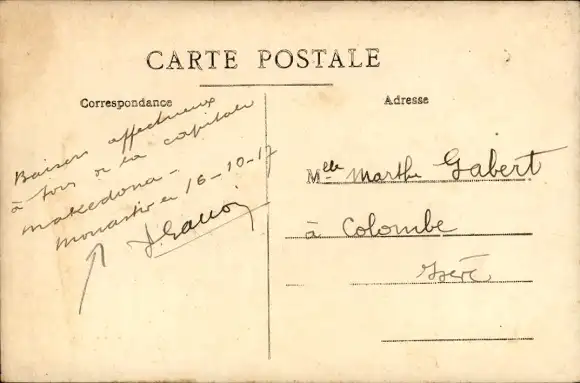 CARTE POSTALE
Correspondance
Adresse
Baisers affectueux
à tous de la capitale
Makedona -
Monastir le 16-10-17
Mlle Marthe Gabert
à Colombe
Isère